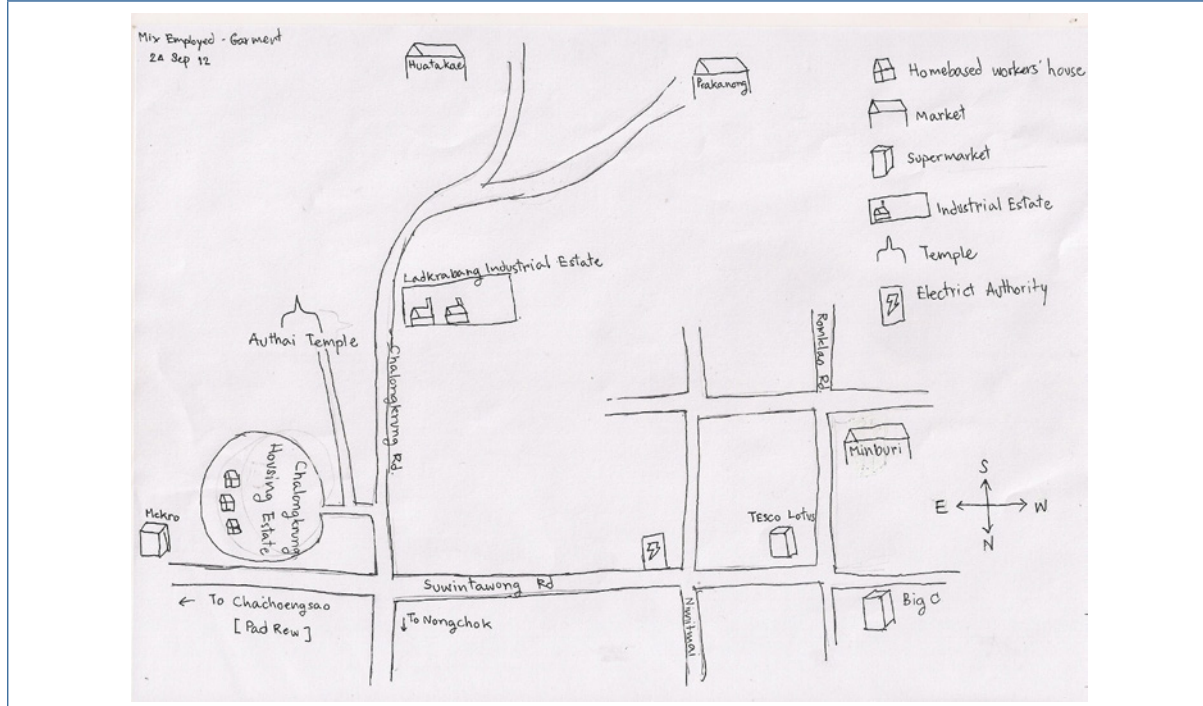 Mix Employed - Garment
24 Sep 12
Huatakae
Prakanong
Homebased workers' house
Market
Supermarket
Industrial Estate
Temple
Electrict Authority
Ladkrabang Industrial Estate
Authai Temple
Chalongkrung Rd.
Romklao Rd.
Minburi
Chalongkrung
Housing Estate
Mekro
Tesco Lotus
S
E
W
N
Suwintawong Rd
← To Chachoengsao
[Pad Rew]
↓To Nongchok
Nimitmai
Big C